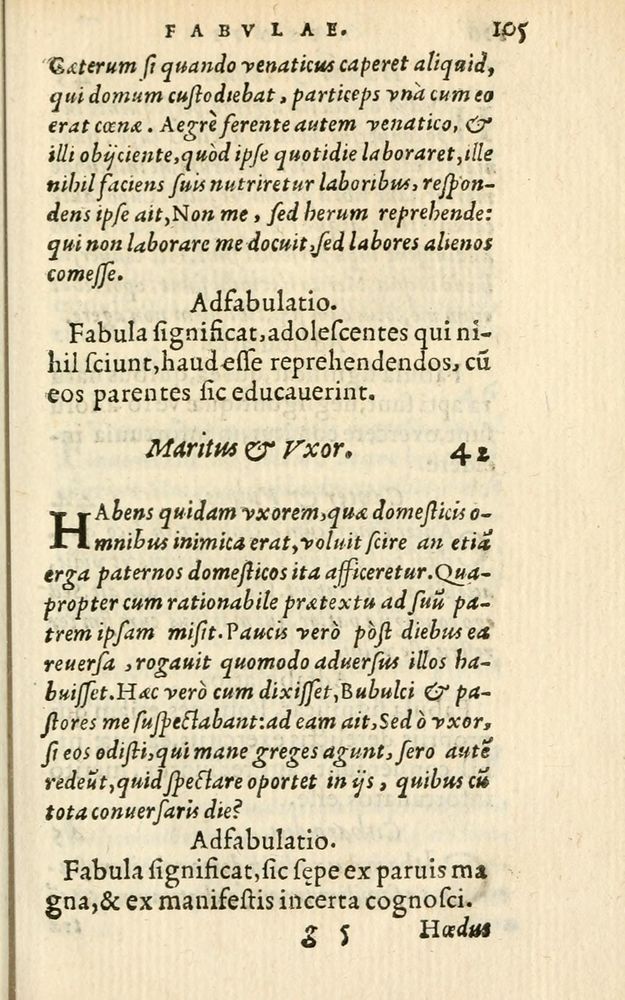 FABVLAE. 105
Cæterum si quando venaticus caperet aliquid,
qui domum custodiebat, particeps vnà cum eo
erat cœnæ. Aegrè ferente autem venatico, &
illi obijciente, quòd ipse quotidie laboraret, ille
nihil faciens suis nutriretur laboribus, respon-
dens ipse ait, Non me, sed herum reprehende:
qui non laborare me docuit, sed labores alienos
comesse.
Adfabulatio.
Fabula significat, adolescentes qui ni-
hil sciunt, haud esse reprehendendos, cũ
eos parentes sic educauerint.
Maritus & Vxor. 42
HAbens quidam vxorem, quæ domesticis o-
mnibus inimica erat, voluit scire an etiã
erga paternos domesticos ita afficeretur. Qua-
propter cum rationabile prætextu ad suũ pa-
trem ipsam misit. Paucis verò pòst diebus ea
reuersa, rogauit quomodo aduersus illos ha-
buisset. Hæc verò cum dixisset, Bubulci & pa-
stores me suspectabant: ad eam ait, Sed ò vxor,
si eos odisti, qui mane greges agunt, sero autẽ
redeũt, quid spectare oportet in ijs, quibus cũ
tota conuersaris die?
Adfabulatio.
Fabula significat, sic sępe ex paruis ma
gna, & ex manifestis incerta cognosci.
g 5 Hœdus